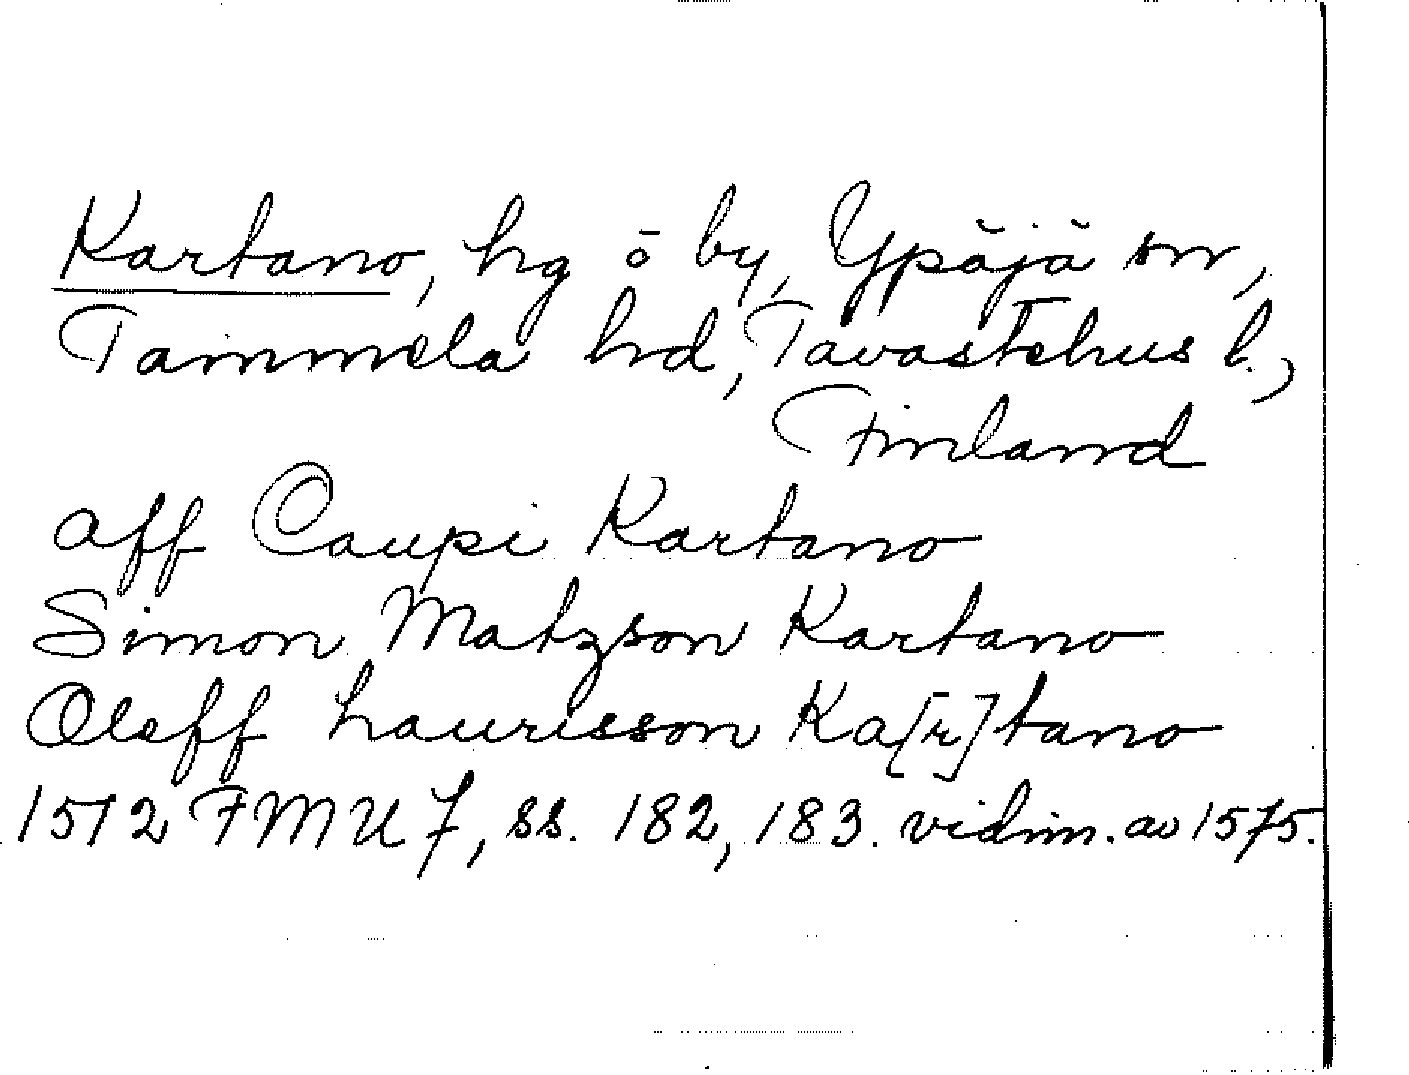 Kartano, hg o by, Ypäjä sn,
Tammela hd, Tavastehus l.,
Finland
aff Caupi Kartano
Simon Matzson Kartano
Oleff Laurisson Ka[r]tano
1512 FMU 7, ss. 182, 183. vidim. av 1575.